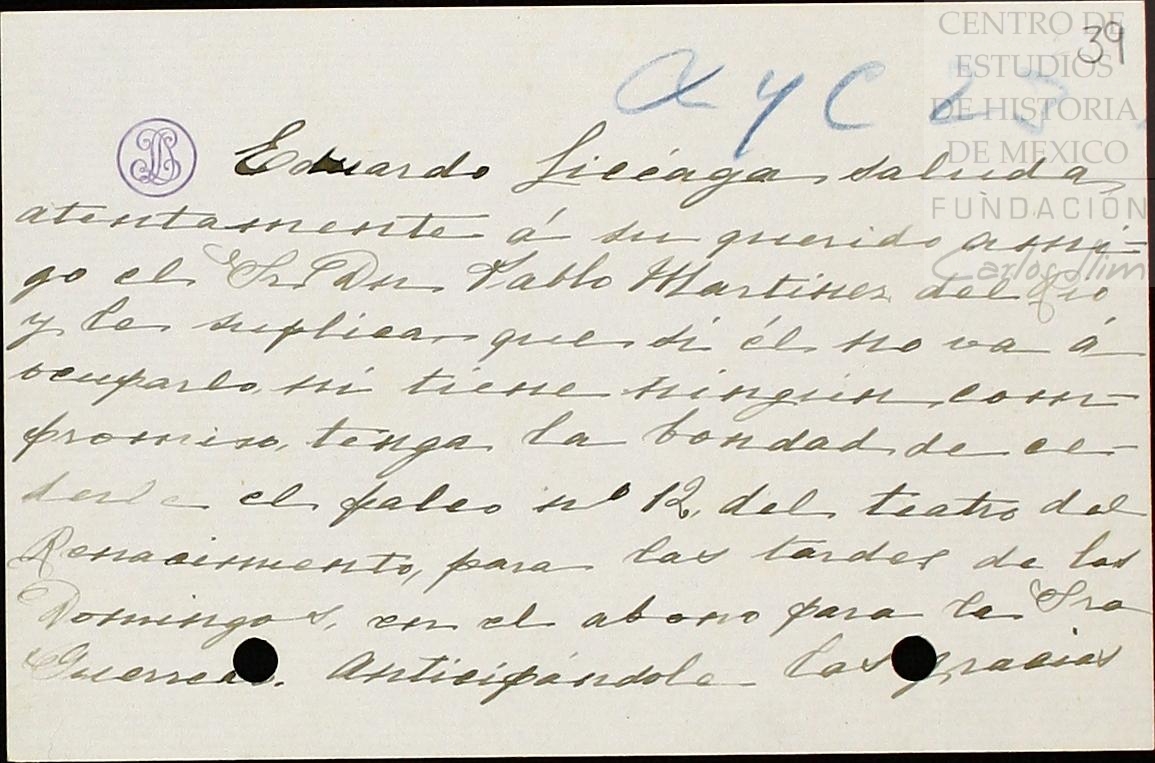 CENTRO DE
39
ESTUDIOS
DE HISTORIA
DE MEXICO
FUNDACIÓN
Carlos Slim
a y C
Eduardo Licéaga, saluda,
atentamente á su querido ami-
go el Sr. Dn Pablo Martinez del Rio
y le suplica que si él no va á
ocuparlo, ni tiene ningún com-
promiso, tenga la bondad de ce-
derle el palco nº 12, del teatro del
Renacimiento, para las tardes de los
Domingos, en el abono para la Sra
Guerrero. Anticipándole las gracias